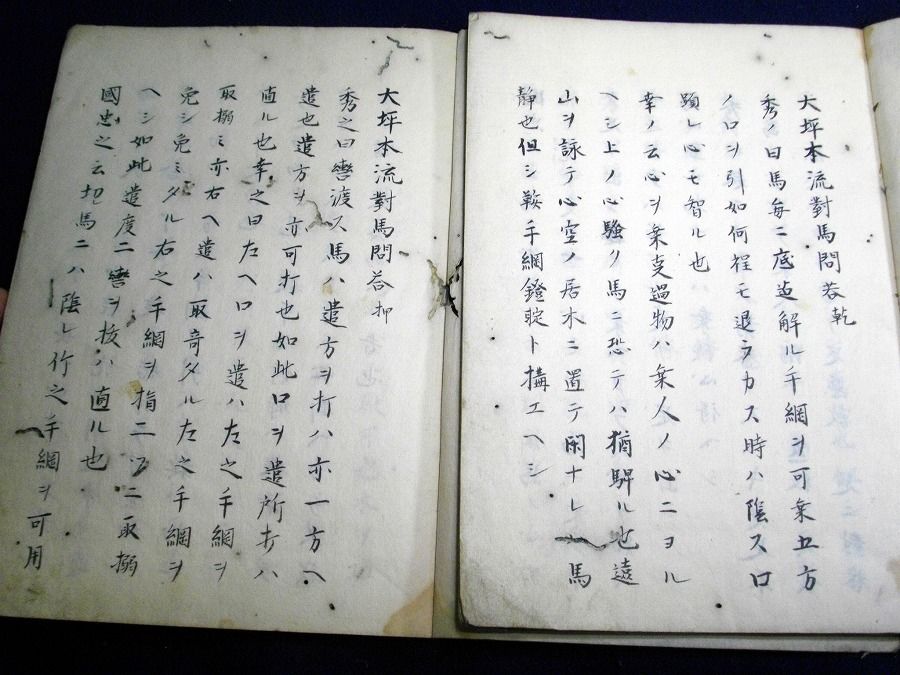 大坪本流對馬問荅乾
秀ノ曰馬每ニ底迠解ル手綱ヲ可乗五方
ノ口ヲ引如何程モ退ラカス時ハ陰ス口
顕レ心モ智ル也
幸ノ云心ヲ乗走過物ハ乗人ノ心ニヨル
ヘシ上ノ心騒ケハ馬ニ恐テハ猶騂ル也遠
山ヲ詠テ心空ノ居木ニ置テ閑ナレハ馬
静也但シ鞍手綱鐙聢ト搆エヘシ
大坪本流對馬問荅坤
秀之曰轡渡ス馬ハ遣方ヲ打ハ亦一方ヘ
遣也遣方ヲ亦可打也如此口ヲ遣所打ハ
直ル也幸之曰左ヘ口ヲ遣ハ左之手綱ヲ
取搦ミ亦右ヘ遣ハ取奇タル左之手綱ヲ
免シ免ミタル右之手綱ヲ指二ツニ取搦
ヘシ如此遣度二轡ヲ抜ハ直ル也
國忠之云
馬ニハ陰レ竹之手綱ヲ可用